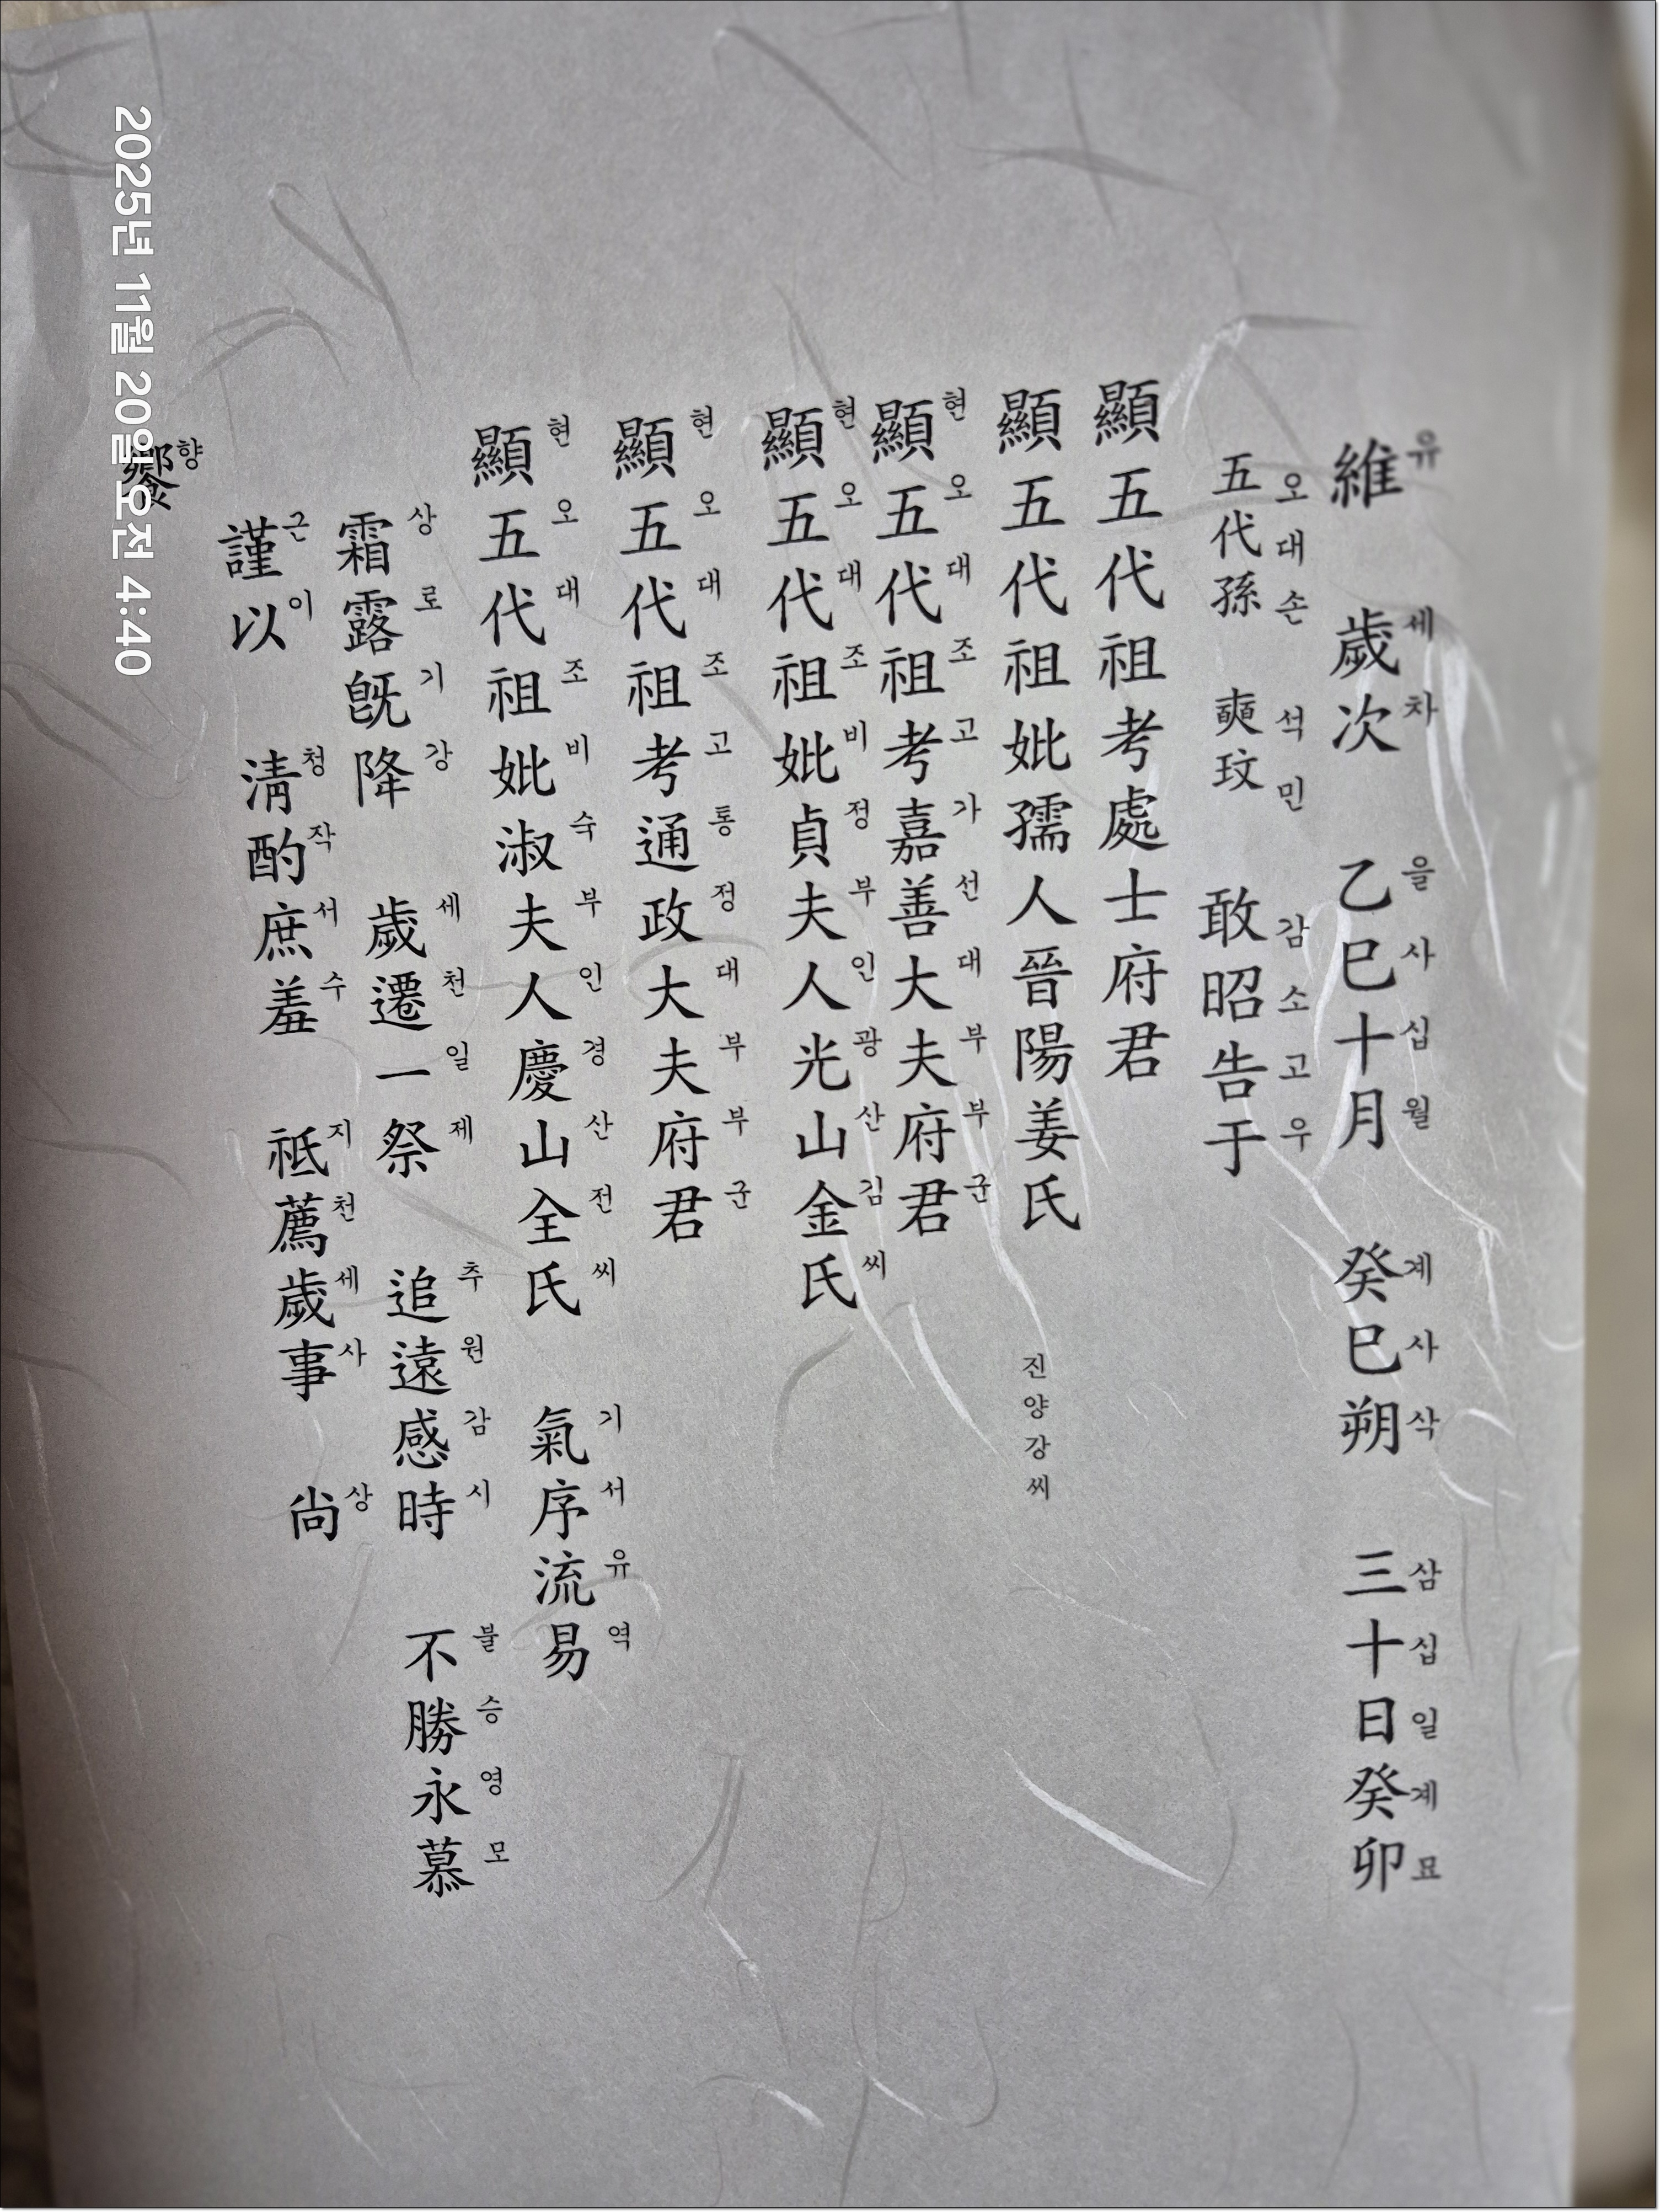 維 歲次 乙巳十月 癸巳朔 三十日癸卯
유 세차 을사십월 계사삭 삼십일계묘
五代孫 奭玟 敢昭告于
오대손 석민 감소고우
顯五代祖考處士府君
顯五代祖妣孺人晉陽姜氏
진양강씨
顯五代祖考嘉善大夫府君
현오대조고가선대부부군
顯五代祖妣貞夫人光山金氏
현오대조비정부인광산김씨
顯五代祖考通政大夫府君
현오대조고통정대부부군
顯五代祖妣淑夫人慶山全氏 氣序流易
현오대조비숙부인경산전씨 기서유역
霜露旣降 歲遷一祭 追遠感時 不勝永慕
상로기강 세천일제 추원감시 불승영모
謹以 淸酌庶羞 祗薦歲事 尙
근이 청작서수 지천세사 상
饗
향
2025년 11월 20일 오전 4:40